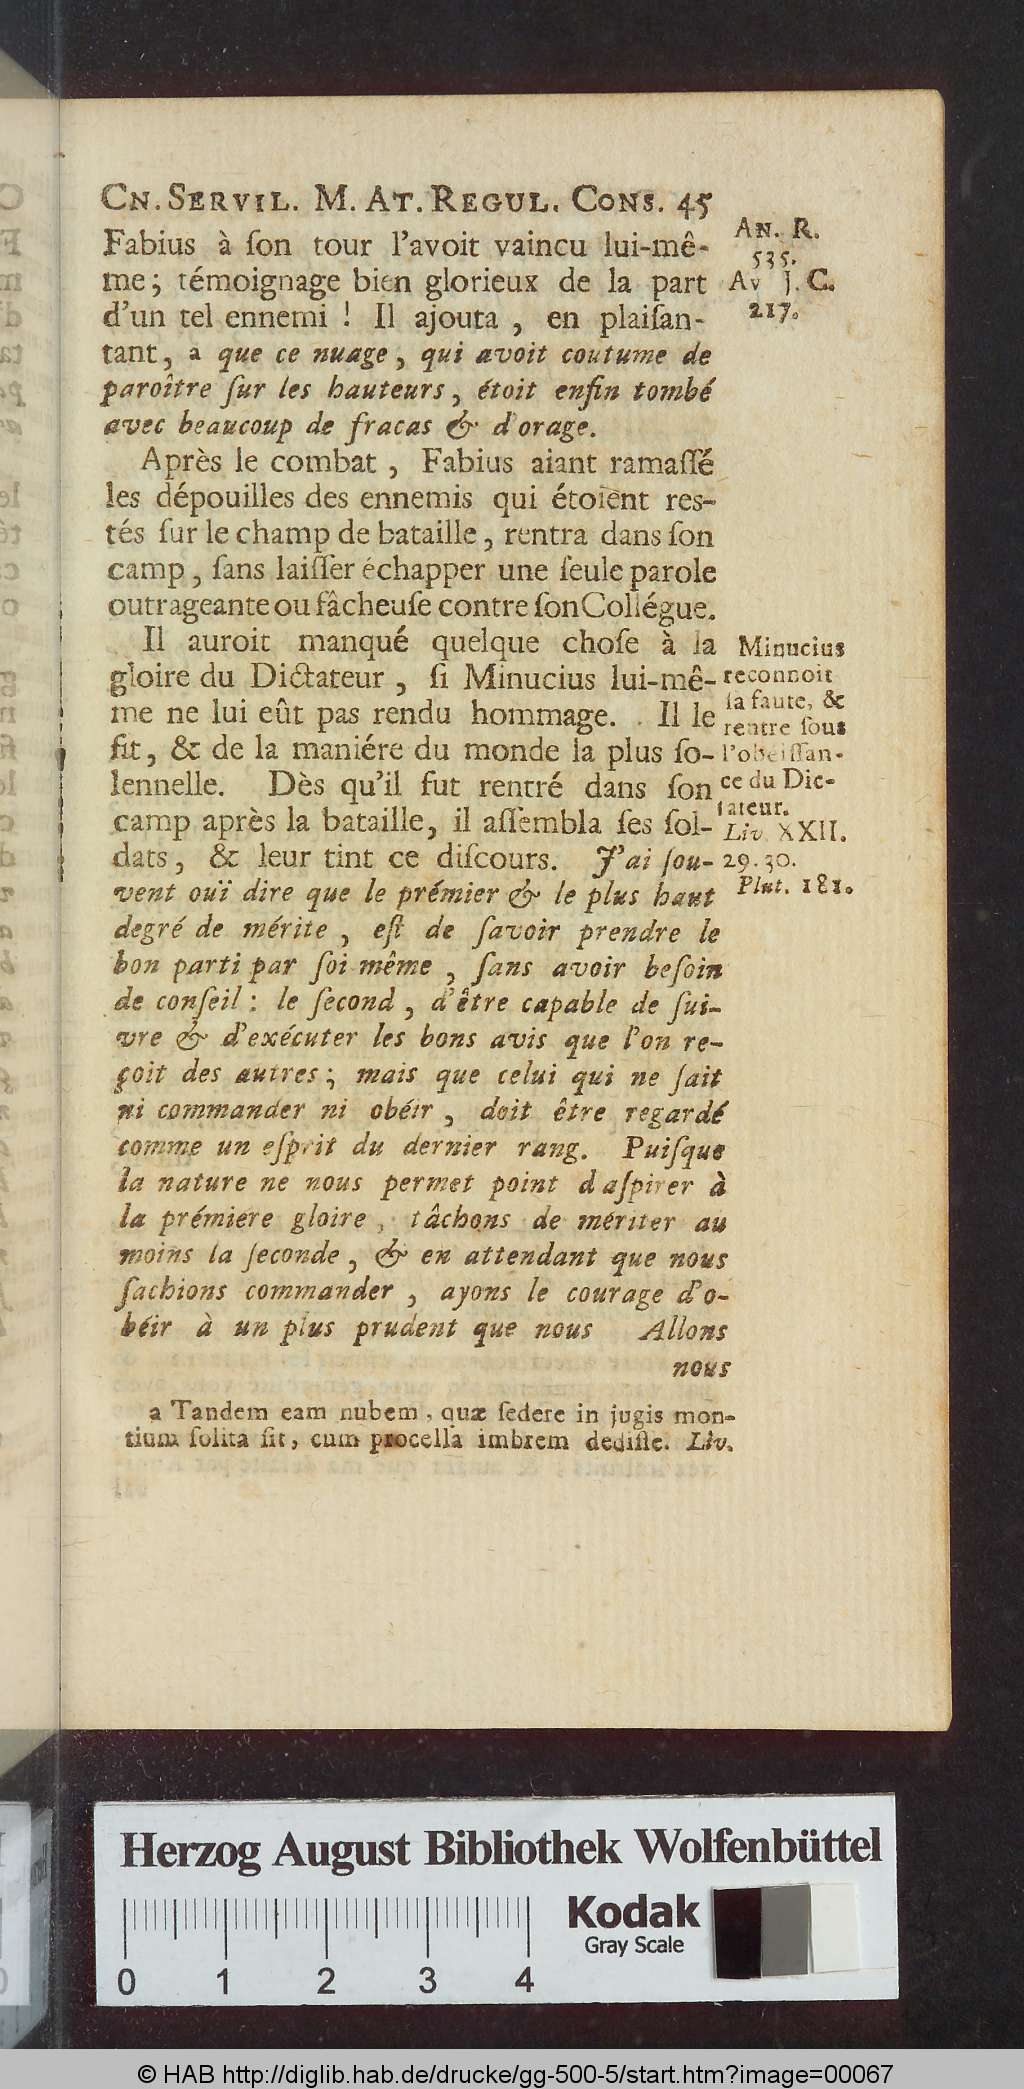 CN. SERVIL. M. AT. REGUL. CONS. 45
Fabius à ſon tour l'avoit vaincu lui-mê-
me; témoignage bien glorieux de la part
d'un tel ennemi ! Il ajouta, en plaiſan-
tant, a que ce nuage, qui avoit coutume de
paroître ſur les hauteurs, étoit enfin tombé
avec beaucoup de fracas & d'orage.
Après le combat, Fabius aiant ramaſſé
les dépouilles des ennemis qui étoient res-
tés ſur le champ de bataille, rentra dans ſon
camp, ſans laiſſer échapper une ſeule parole
outrageante ou fâcheuſe contre ſon Collégue.
Il auroit manqué quelque choſe à la
gloire du Dictateur, ſi Minucius lui-mê-
me ne lui eût pas rendu hommage. Il le
fit, & de la maniére du monde la plus ſo-
lennelle. Dès qu'il fut rentré dans ſon
camp après la bataille, il aſſembla ſes ſol-
dats, & leur tint ce diſcours. J'ai ſou-
vent ouï dire que le prémier & le plus haut
degré de mérite, eſt de ſavoir prendre le
bon parti par ſoi même, ſans avoir beſoin
de conſeil: le ſecond, d'être capable de ſui-
vre & d'exécuter les bons avis que l'on re-
çoit des autres; mais que celui qui ne ſait
ni commander ni obéir, doit être regardé
comme un eſprit du dernier rang. Puiſque
la nature ne nous permet point d aſpirer à
la prémiere gloire, tâchons de mériter au
moins la ſeconde, & en attendant que nous
ſachions commander, ayons le courage d'o-
béir à un plus prudent que nous Allons
nous
a Tandem eam nubem, quæ ſedere in jugis mon-
tium ſolita ſit, cum procella imbrem dediſſe. Liv.
AN. R.
535.
Av J. C.
217.
Minucius
reconnoit
ſa faute, &
rentre ſous
l'obéiſſan-
ce du Dic-
tateur.
Liv. XXII.
29.30.
Plut. 181.
Herzog August Bibliothek Wolfenbüttel
Kodak
Gray Scale
0 1 2 3 4
© HAB http://diglib.hab.de/drucke/gg-500-5/start.htm?image=00067